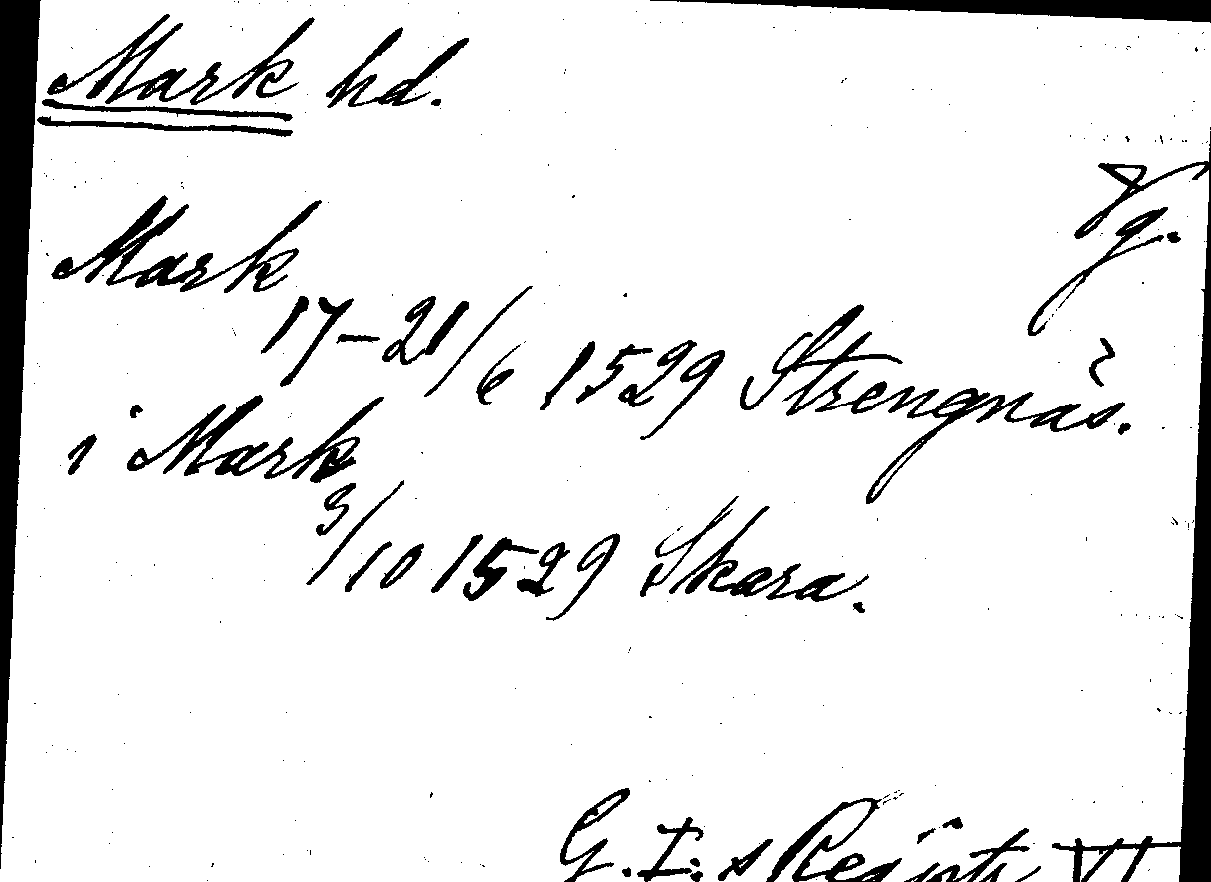 Mark hd.
Vg.
Mark
17–21/6 1529 Strengnäs.
i Mark
3/10 1529 Skara.
G. I:s Registr. VI